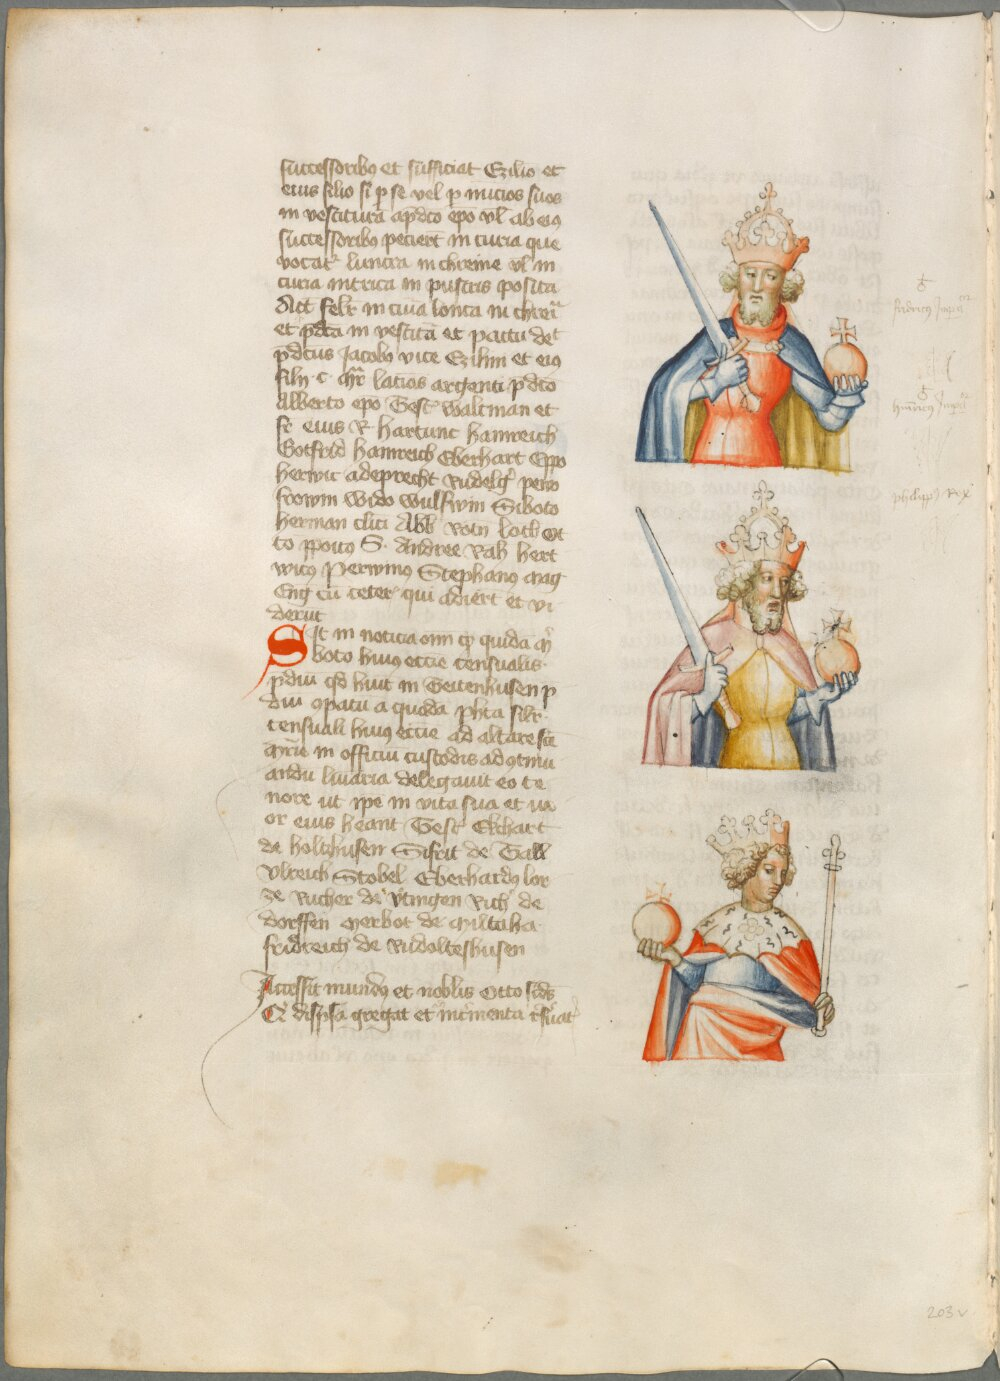 successoribus et sufficiat Ezilio et
eius filio si p se vel p nuncios suos
in vestitura apdco epo vl ab eius
successoribus pecierit in curia que
vocat lunera in chreine vl in
curia intrica in pustris posita
Act Felr in curia lonca in chrei
et pdca in vestita et pactu det
pdcus Jacobus vice Ezilini et eius
filii c mr lacios argenti pdco
Alberto epo Test Waltman et
fr eius R hartunc hainreich
Gotfrid hainreich Eberhart Eppo
herwic adeprecht Rudelg pero
frowin Wido Wulfwin Siboto
herman clici Abb Rotn loth ot
to ppoitus S. Andree Rah hert
wicus Perwinus Stephanus mag
Eng cu ceter qui adiert et vi
derut
Sit in noticia oim qp quida
boto huius eccie censualis
pdiu qd huit in Geitenhusen p
diu opatu a quoda phta silr
censuali huius eccie ad altare sce
marie in officiu custodis ad
andu linaria delegavit eo te
nore ut ipe in vita sua et ux
or eius heant Test Ekhart
de holtzhusen Sifrit de Tall
Ulreich Stobel Eberhardus lor
ze Richer de Utingen Rich de
dorffen merbot de miltaha
fridreich de Rudolteshusen
Accessit mundus et nobilis Otto scds
Q dispsa gregat et incrementa
fridricus Imperator
hinricus Imperator
philippus Rex
203 v